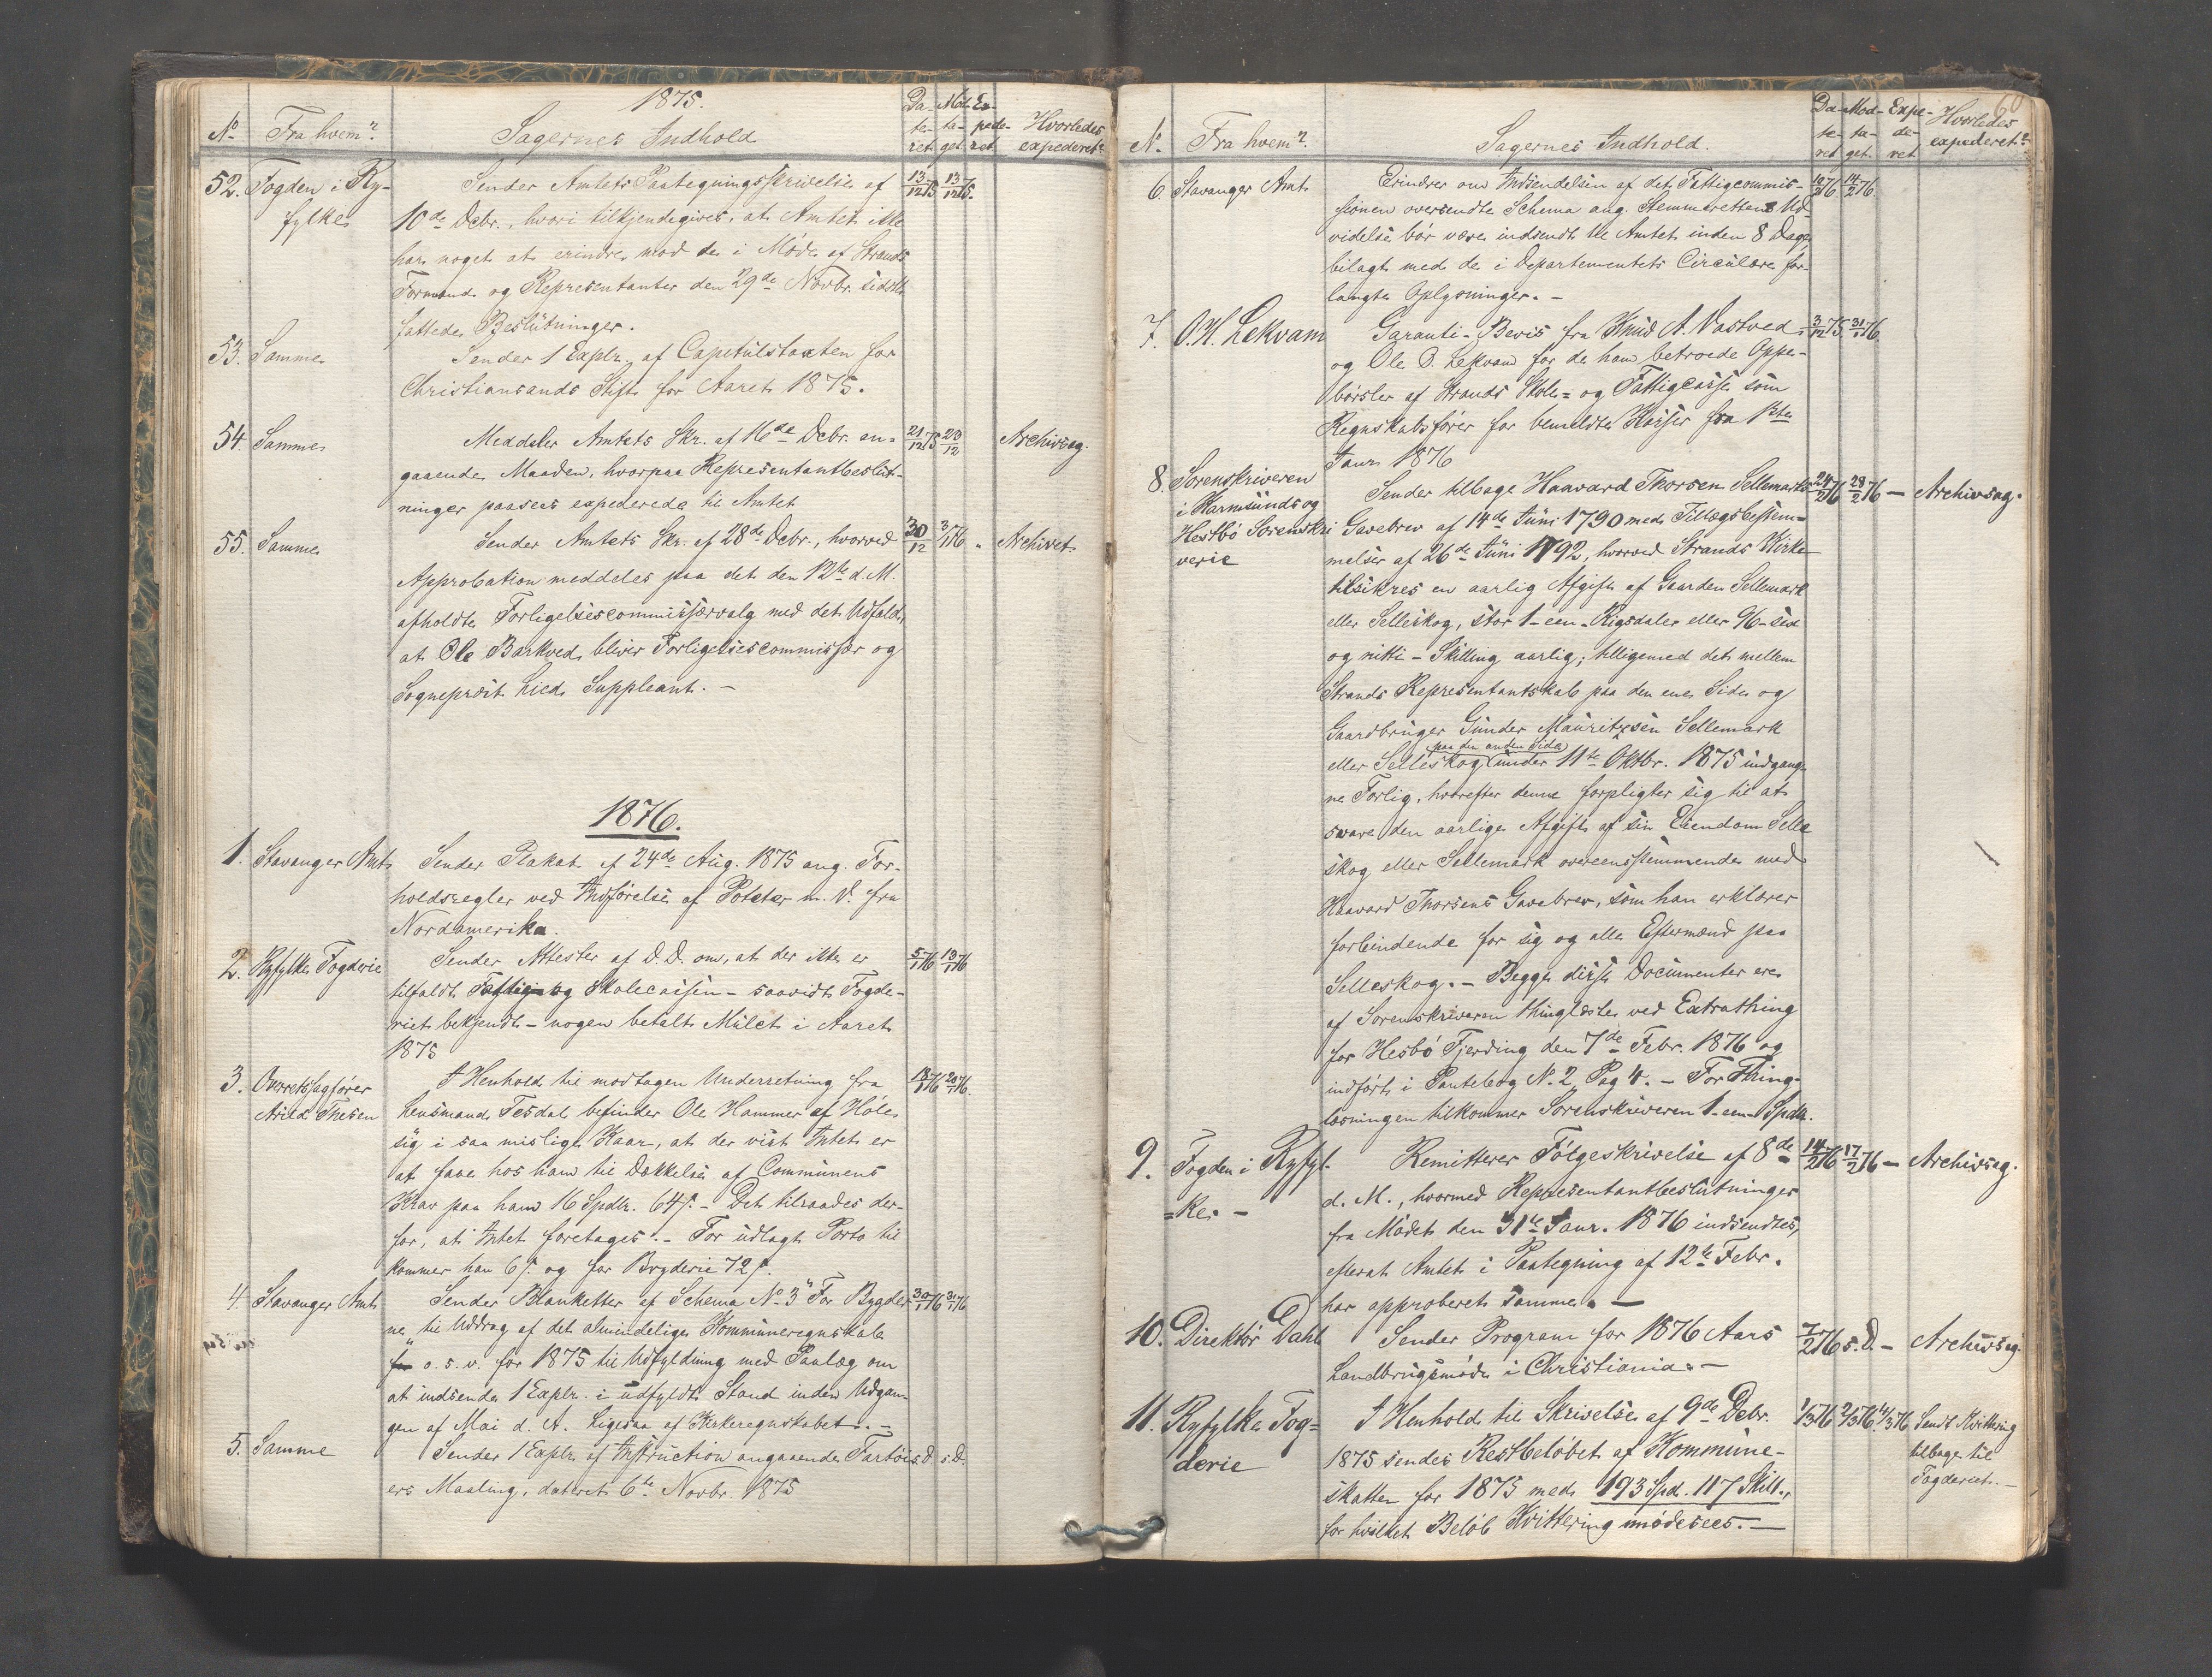 1875.
No Fra hvem? Sagernes Indhold Da-te-ret. Mod-ta-get. Ex-pede-ret. Hvorledes expederet?
52. Fogden i Ry- Sender Amtets Paategningsskrivelse af 13/12 75 13/12 75.
fylke 10de Debr., hvori tilkjendegives, at Amtet ikke
har noget at erindre mod de i Møde af Strands
Formænd og Repræsentanter den 29de Novbr. sidstl.
fattede Beslutninger.
53. Samme Sender 1 Explr. af Capitulstaxten for
Christiansands Stift for Aaret 1875.
54. Samme Meddeler Amtets Skr. af 16de Debr. an- 21/12 75 23/12 Archivsag.
gaaende Maaden, hvorpaa Repræsentantbeslut-
ninger paasees expederede til Amtet
55. Samme Sender Amtets Skr. af 28de Debr., hvorved 30/12 3/1 76 " Archivet
Approbation meddeles paa det den 12te d. M.
afholdte Forligelsescommissærvalg med det Udfald,
at Ole Barkved bliver Forligelsescommissær og
Sogneprest Lied Suppleant. -
1876.
1. Stavanger Amt Sender Plakat af 24de Aug. 1875 ang. For-
holdsregler ved Indførelse af Poteter m. V. fra
Nordamerika.
2. Ryfylke Fogderie Sender Attester af D. D. om, at der ikke er 5/1 76 13/1 76
tilfaldt Fattig- og Skolecassen - saavidt Fogde-
riet bekjendt - nogen betalt Mulct i Aaret
1875
3. Overretssagfører I Henhold til modtagen Underretning fra 18/1 76 20/1 76.
Arild Thesen Lensmand Tesdal befinder Ole Hammer af Høle
sig i saa mislige Kaar, at der vist Intet er
at faae hos ham til Dækkelse af Communens
Krav paa ham 16 Spdlr. 64 s. - Det tilraades der-
for, at Intet foretages. - For udlagt Porto til
kommer han 6 s. og for Bryderie 72 s.
4. Stavanger Amt Sender Blanketter af Schema No 3 "For Bygder 30/1 76 31/1 76
ne" til Uddrag af det almindelige Kommuneregnskab
o. s. v. for 1875 til Udfyldning med Paalæg om
at indsende 1 Explr. i udfyldt Stand inden Udgan-
gen af Mai d. A. Ligesaa af Kirkeregnskabet. -
5. Samme Sender 1 Explr. af Instruction angaaende Fartøi- s. D. s. D.
ers Maaling, dateret 6te Novbr. 1875
60
No. Fra hvem? Sagernes Indhold. Da-te-ret Mod-ta-get. Expe-de-ret Hvorledes expederet?
6. Stavanger Amt Erindrer om Indsendelsen af det Fattigcommis- 12/2 76. 14/2 76.
sionen oversendte Schema ang. Stemmerettens Ud-
videlse bør være indsendt til Amtet inden 8 Dage,
bilagt med de i Departementets Circulære for-
langte Oplysninger. -
7. O. H. Lekvam Garanti-Bevis fra Knud A. Vastved 3/12 75. 31/1 76.
og Ole O. Lekvam for de ham betroede Oppe-
børsler af Strands Skole- og Fattigcasse som
Regnskabsfører for bemeldte Kasser fra 1ste
Janr. 1876
8. Sorenskriveren Sender tilbage Haavard Thorsen Sellemarks 24/2 76 28/2 76 - Archivsag.
i Karmsunds og
Hesbø Sorenskri Gavebrev af 14de Juni 1790 med Tillægsbestem-
verie melser af 26de Juni 1792, hvorved Strands Kirke
tilsikres en aarlig Afgift af Gaarden Sellemark
eller Selleskog, stor 1 - een - Rigsdaler eller 96 - sex
og nitti - Skilling aarlig; tilligemed det mellem
Strands Repræsentantskab paa den ene Side og
Gaardbruger Gunder Mauritzsen Sellemark
paa den anden Side
eller Selleskog under 11te Oktbr. 1875 indgang-
ne Forlig, hvorefter denne forpligter sig til at
svare den aarlige Afgift af sin Eiendom Selle
skog eller Sellemark overeensstemmende med
Haavard Thorsens Gavebrev, som han erklærer
forbindende for sig og alle Eftermænd paa
Selleskog. - Begge disse Documenter ere
af Sorenskriveren thinglæste ved Extrathing
for Hesbø Fjerding den 7de Febr. 1876 og
indført i Pantebog No. 2, Pag 4. - For Thing-
læsningen tilkommer Sorenskriveren 1 - een - Spdlr.
9. Fogden i Ryfyl- Remitterer Følgeskrivelse af 8de 14/2 76 17/2 76 - Archivsag.
=ke. - d. M., hvormed Repræsentantbeslutninger
fra Mødet den 31te Janr. 1876 indsendtes,
efterat Amtet i Paategning af 12te Febr.
har approberet samme. -
10. Direktør Dahl Sender Program for 1876 Aars 7/2 76 s. D. - Archivsag.
Landbrugsmøde i Christiania. -
11. Ryfylke Fog- I Henhold til Skrivelse af 9de Debr. 1/3 76 2/3 76 14/3 76 Sendt Kvittering
derie 1875 sendes Restbeløbet af Kommune- tilbage til
skatten for 1875 med 193 Spd. 117 Skill., Fogderiet. -
for hvilket Beløb Kvittering imødesees. -